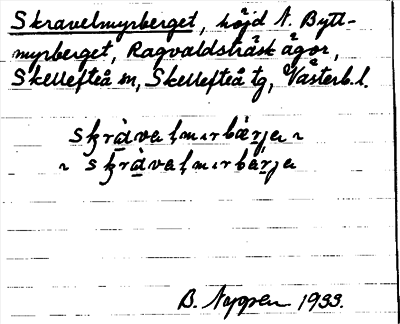 Skravelmyrberget, höjd N. Bytt-
myrberget, Ragvaldsträsk ägor,
Skellefteå sn, Skellefteå tg, Västerb. l.
skràvalmırbärja ~
~ skràvalmırbärja
B. Nyppen 1933.